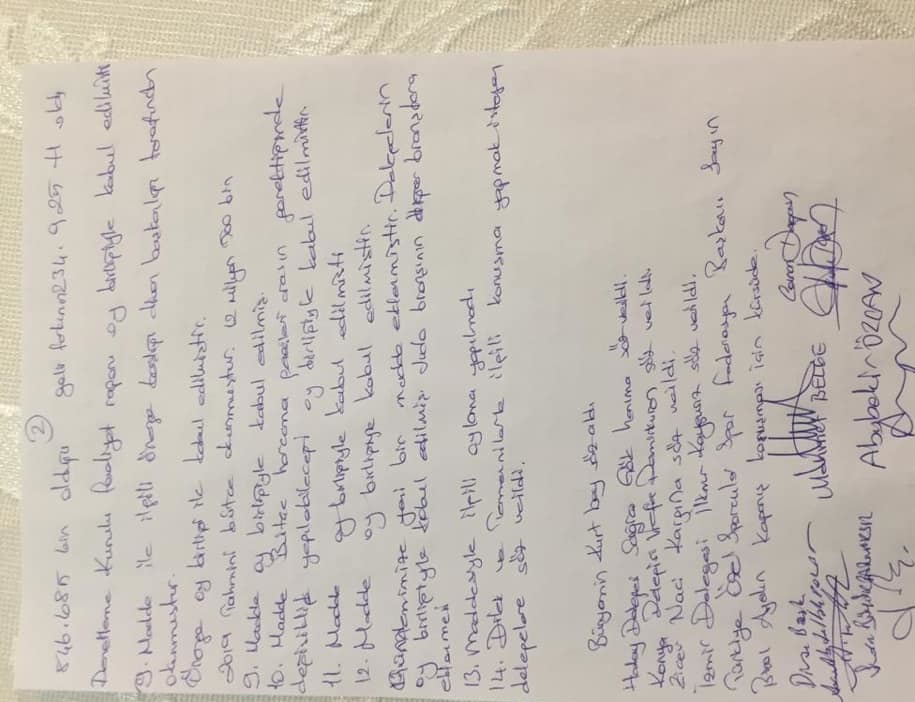 2
846.685 bin oldugu gelir farkının 234.925 tl oldu
Denetleme Kurulu faaliyet raporu oy birliğiyle kabul edilmişti
9. Madde ile ilgili önerge başkan divan başkanlığı tarafından
okunmuştur.
Önerge oy birliği ile kabul edilmiştir.
2019 Tahmini bütçe okunmuştur. 12 milyon 500 bin
9. Madde oy birliğiyle kabul edilmiş.
10. Madde Bütçe harcama parası oranın
değişikliği yapılabileceği oy birliğiyle kabul edilmiştir.
11. Madde oy birliğiyle kabul edilmişti
12. Madde oy birliğiyle kabul edilmiştir.
Gündemimize yeni bir madde eklenmiştir. Delegelerin
oy birliğiyle kabul edilmiş Judo branşının diğer branşlara
eklenmesi
13. Maddesiyle ilgili oylama yapılmadı
14. Dilek ve Temennilerle ilgili konuşma yapmak isteyen
delegelere söz verildi.
Bünyamin Kurt bey söz aldı
Hatay Delegesi Sağra Gök hanıma söz verildi.
Konya Delegesi söz verildi.
Zicev Naci Kargina söz verildi.
İzmir Delegesi İlknur Kaygusuz söz verildi.
Türkiye Özel Sporcular Spor Federasyon Başkanı Sayın
Birol Aydın kapanış konuşması için kürsüde.
Divan Başk.
Mehmet BELGE
Caner Doğan
Abuybekir ÖZCAN